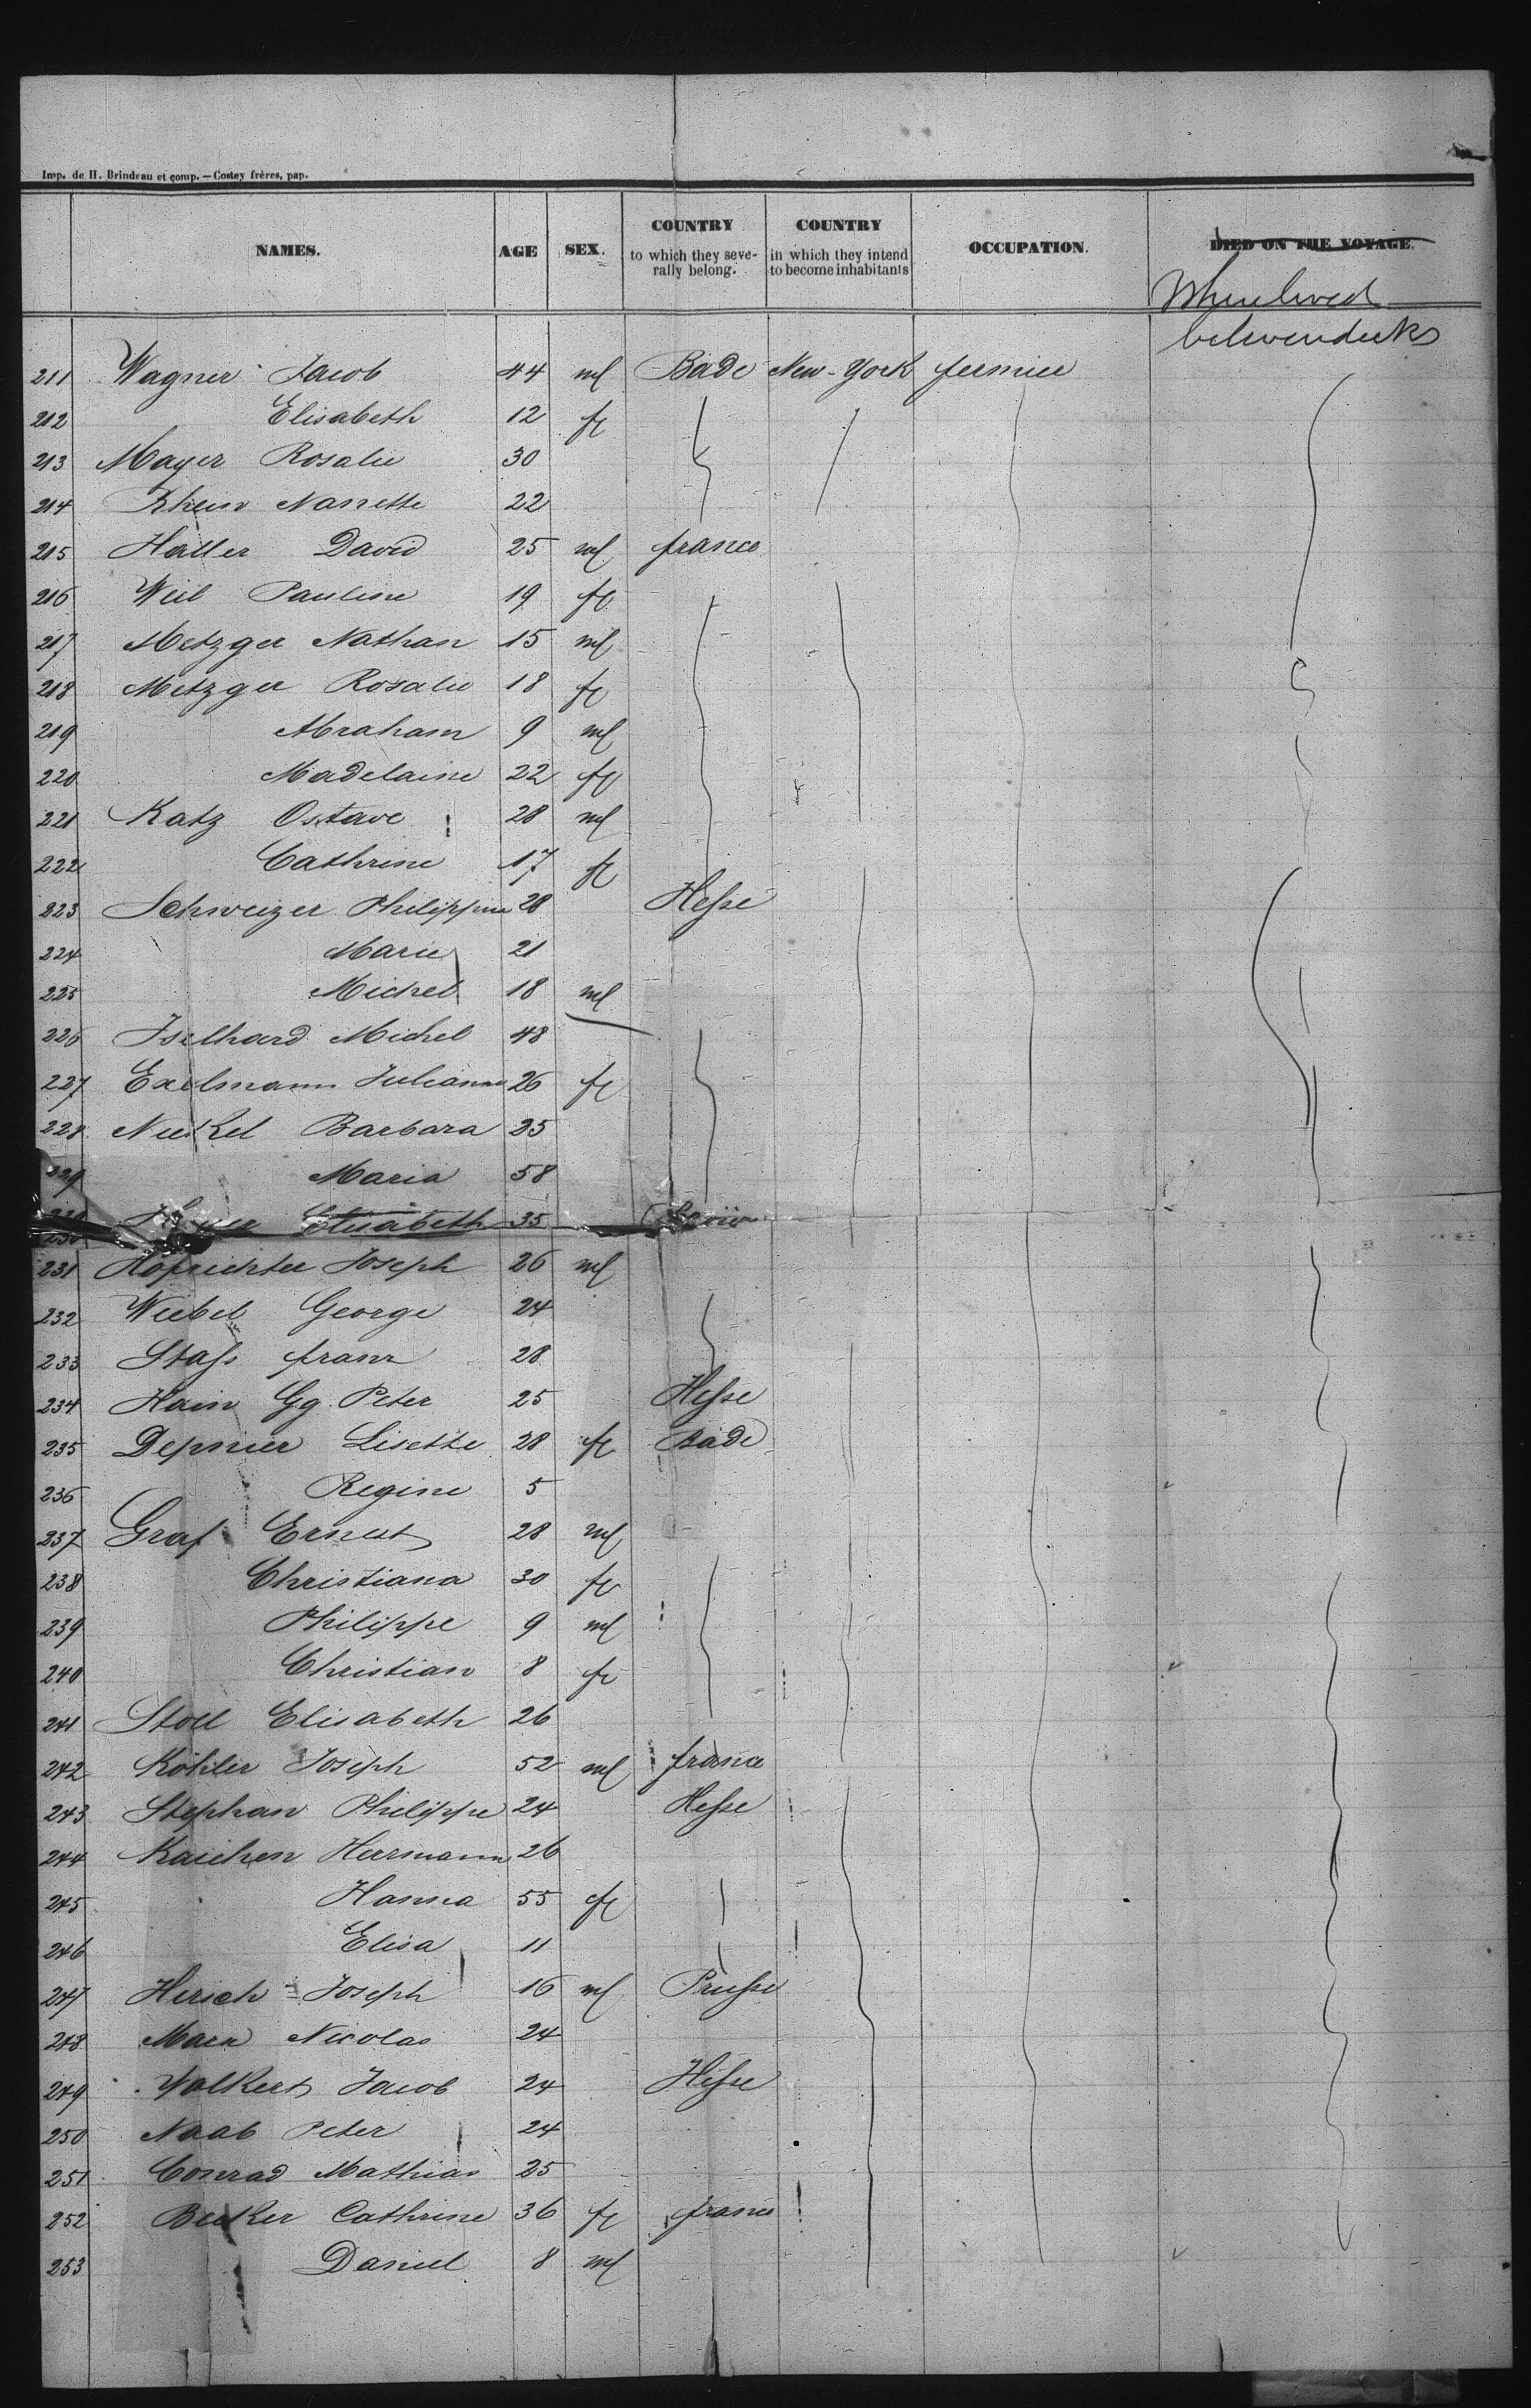 Imp. de H. Brindeau et comp. — Costey frères, pap.
NAMES. AGE SEX. COUNTRY to which they severally belong. COUNTRY in which they intend to become inhabitants OCCUPATION. DIED ON THE VOYAGE.
between decks
211 Wagner Jacob 44 ml Bade New-York fermier
212 Elisabeth 12 fe
213 Mayer Rosalie 30
214 Rhein Nanette 22
215 Haller David 25 ml france
216 Weil Pauline 19 fe
217 Metzger Nathan 15 ml
218 Metzger Rosalie 18 fe
219 Abraham 9 ml
220 Madelaine 22 fe
221 Katz Ostave 28 ml
222 Cathrine 17 fe
223 Schweizer Philippine 28 Hesse
224 Marie 21
225 Michel 18 ml
226 Iselhard Michel 48
227 Exelmann Julianne 26 fe
228 Neckel Barbara 25
229 Maria 58
230 Elisabeth 35
231 Hofrichter Joseph 26 ml
232 Weibel George 24
233 Stass franz 28
234 Hain Gg. Peter 25 Hesse
235 Depmier Lisette 28 fe Bade
236 Regine 5
237 Graf Ernest 28 ml
238 Christiana 30 fe
239 Philippe 9 ml
240 Christian 8 fe
241 Stoll Elisabeth 26
242 Köhler Joseph 52 ml france
243 Stephan Philippe 24 Hesse
244 Kaichen Herrmann 26
245 Hanna 55 fe
246 Elisa 11
247 Hirsch Joseph 16 ml Prusse
248 Marx Nicolas 24
249 Volkert Jacob 24 Hesse
250 Naab Peter 24
251 Conrad Mathias 25
252 Becker Cathrine 36 fe france
253 Daniel 8 ml